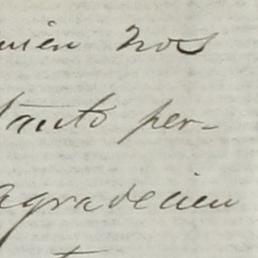 uien nos
tanto per-
agradecien